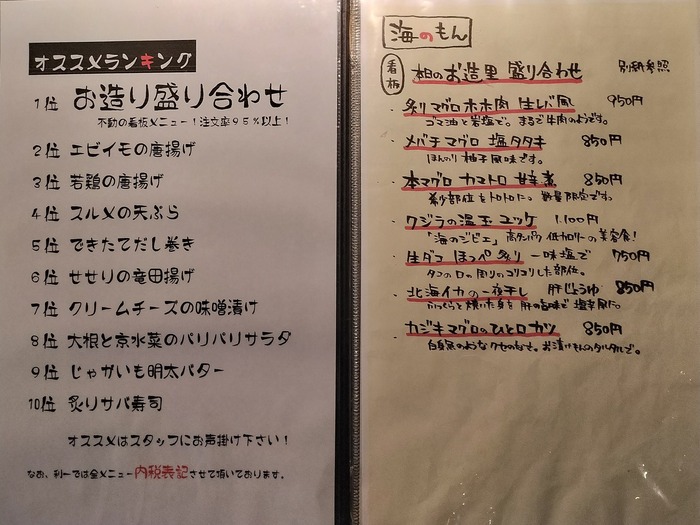 オススメランキング
1位 お造り盛り合わせ
不動の看板メニュー！注文率95％以上！
2位 エビイモの唐揚げ
3位 若鶏の唐揚げ
4位 スルメの天ぷら
5位 できたてだし巻き
6位 せせりの竜田揚げ
7位 クリームチーズの味噌漬け
8位 大根と京水菜のパリパリサラダ
9位 じゃがいも明太バター
10位 炙りサバ寿司
オススメはスタッフにお声掛け下さい！
なお、利一では全メニュー内税表記させて頂いております。
海のもん
看板 本日のお造里 盛り合わせ 別紙参照
・炙りマグロホホ肉 生レバ風 950円
ゴマ油と岩塩で。まるで牛肉のようです。
・メバチマグロ 塩タタキ 850円
ほんのり柚子風味です。
・本マグロ カマトロ 甘辛煮 850円
希少部位をトロトロに。数量限定です。
・クジラの温玉ユッケ 1,100円
「海のジビエ」高タンパク低カロリーの美容食！
・生ダコ ほっぺ炙り 一味塩で 750円
タコの口の周りのコリコリした部位。
・北海イカの一夜干し 肝じょうゆ 850円
ふっくらと焼いた身を肝の旨味で塩辛風に。
・カジキマグロのひとロカツ 850円
白身魚のようなクセのなさ。お漬けもんのタルタルで。